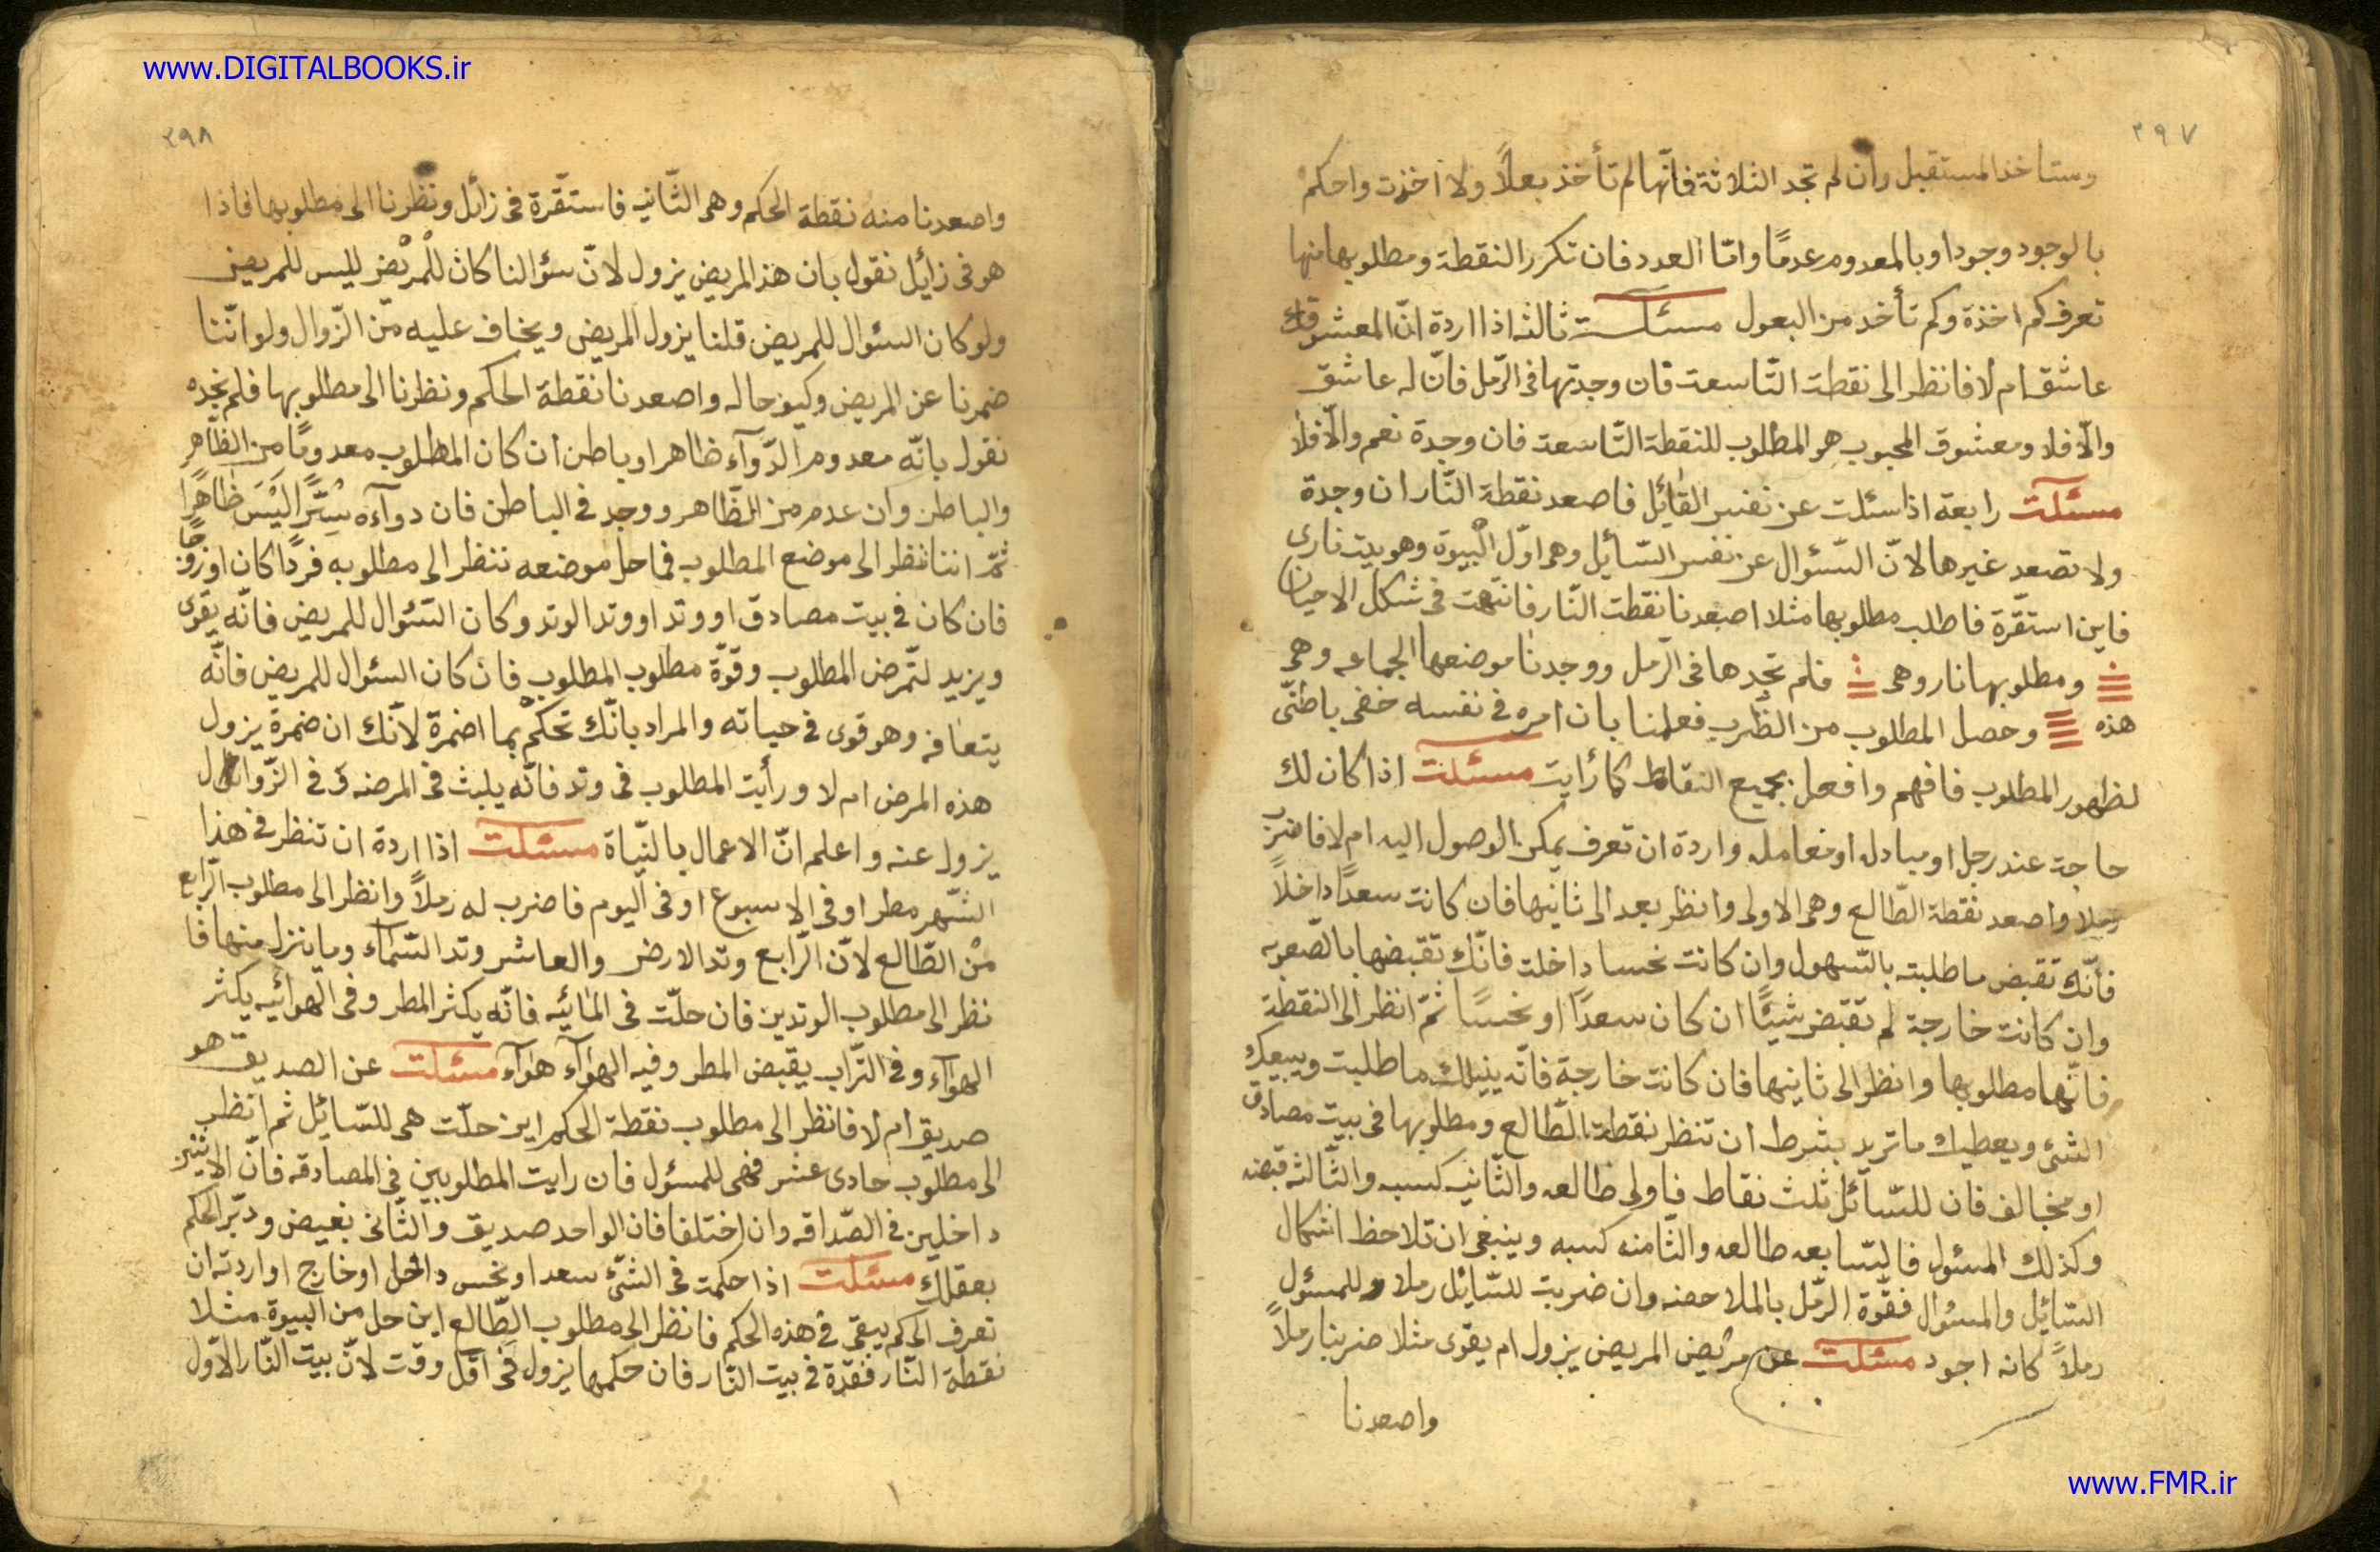 www.DIGITALBOOKS.ir
٢٩٧
وستاخذ المستقبل وان لم تجد الثلاثة فانّها لم تأخذ بعلاً ولا اخذت واحكم
بالوجود وجودا وبالمعدوم عدمًا وامّا العدد فان تكرر النقطة ومطلوبها منها
تعرف كم اخذة وكم تأخد من البعول مسئلت ثالثه اذا اردة انّ المعشوقك
عاشق ام لا فانظر الى نقطت التّاسعت فان وجدتها فى الرّمل فانّ له عاشق
والّا فلا ومعشوق المحبوب هو المطلوب للنقطة التّاسعت فان وجدة نعم والّا فلا
مسئلت رابعة اذا سئلت عن نفس القائل فاصعد نقطة النّار ان وجدة
ولا تصعد غيرها لانّ السّئوال عن نفس السّائل وهى اوّل البيوة وهو بيت نارى
فاين استقّرة فاطلب مطلوبها مثلا اصعدنا نقطت النّار فانتهت فى شكل الاحيان
ومطلوبها نار وهى فلم تجدها فى الرّمل ووجدنا موضعها الجماعه وهى
هذه وحصل المطلوب من الضّرب فعلمنا بان امره فى نفسه خفى باطنّى
لظهور المطلوب فافهم وافعل بجميع النقاط كما رايت مسئلت اذا كان لك
حاجت عند رجل او مبادل او معامله واردة ان تعرف يمكن الوصول اليه ام لا فاضرب
رملا واصعد نقطة الطّالع وهى الاولى وانظر بعد الى ثانيها فان كانت سعدًا داخلاً
فأنّك تقبض ماطلبته بالسّهول وان كانت نحسا داخلت فانّك تقبضها بالصّعوبه
وان كانت خارجة لم تقبض شيئًا ان كان سعدًا او نحسًا ثمّ انظر الى النقطة
فانّها مطلوبها وانظر الى ثانيها فان كانت خارجة فانّه ينيلك ما طلبت ويبيعك
الشئ ويعطيك ما تريد بشرط ان تنظر نقطة الطّالع ومطلوبها فى بيت مصادق
او مخالف فان للسّائل ثلث نقاط فاولى طالعه والثّانيه كسبه والثّالثه قبضه
وكذلك المسئول فالسّابعه طالعه والثّامنه كسبه وينبغى ان تلاحظ اشكال
السّايل والمسئوال فقّوة الرّمل بالملاحضه وان ضربت للسّايل رملا وللمسئول
رملاً كانه اجود مسئلت عن مريض المريض يزول ام يقوى مثلا ضربنا رملاً
واصعدنا
www.FMR.ir
٢٩٨
واصعدنا منه نقطة الحكم وهى الثّانيه فاستقّرة فى زائل ونظرنا الى مطلوبها فاذا
هو فى زائل نقول بان هذ المريض يزول لانّ سئوالنا كان للمريض ليس للمريض
ولو كان السئوال للمريض قلنا يزول المريض ويخاف عليه من الزّوال ولو انّنا
ضمرنا عن المريض وكيف حاله واصعدنا نقطة الحكم ونظرنا الى مطلوبها فلم نجده
نقول بانّه معدوم الدّوآء ظاهرا وباطن ان كان المطلوب معدومًا من الظّاهر
والباطن وان عدم من الظّاهر ووجد فى الباطن فان دوآءه سرًّا ليس ظاهرا
ثمّ اننا ننظر الى موضع المطلوب فما حل موضعه ننظر الى مطلوبه فردًا كان او زوجًا
فان كان فى بيت مصادق او وتد او وتد الوتد وكان السّئوال للمريض فانّه يقوى
ويزيد لتّمرض المطلوب وقوّة مطلوب المطلوب فان كان السئوال للمريض فانّه
يتعافه وهو قوى فى حياته والمراد بانّك تحكم بما اضمرة لانّك ان ضمرة يزول
هذه المرض ام لا ورأيت المطلوب فى وتد فانّه يلبث فى المرضه وفى الزّوائل
يزول عنه واعلم انّ الاعمال بالنيّاة مسئلت اذا اردة ان تنظر فى هذا
الشّهر مطر او فى الاسبوع او فى اليوم فاضرب له رملاً وانظر الى مطلوب الرّابع
من الطّالع لانّ الرّابع وتد الارض والعاشر وتد السّمآء وما ينزل منها فا
نظر الى مطلوب الوتدين فان حلّت فى المائيه فانّه يكثر المطر وفى الهوائيه يكثر
الهوآء وفى التّراب يقبض المطر وفيه الهوآء هوآء مسئلت عن الصديق هو
صديق ام لا فانظر الى مطلوب نقطة الحكم اين حلّت هى للسّائل ثم انظر
الى مطلوب حادى عشر فهى للمسئول فان رايت المطلوبين فى المصادقه فانّ الاثنين
داخلين فى الصّداقه وان اختلفا فان الواحد صديق والثّانى بغيض ودبّر الحكم
بعقلك مسئلت اذا حكمت فى الشئ سعد او نحس داخل او خارج او اردته ان
تعرف الى كم يبقى فى هذه الحكم فانظر الى مطلوب الطّالع اين حل من البيوة مثلا
نقطة النّار فقدة فى بيت النّار فان حكمها يزول فى اقّل وقت لانّ بيت النّار الاوّل